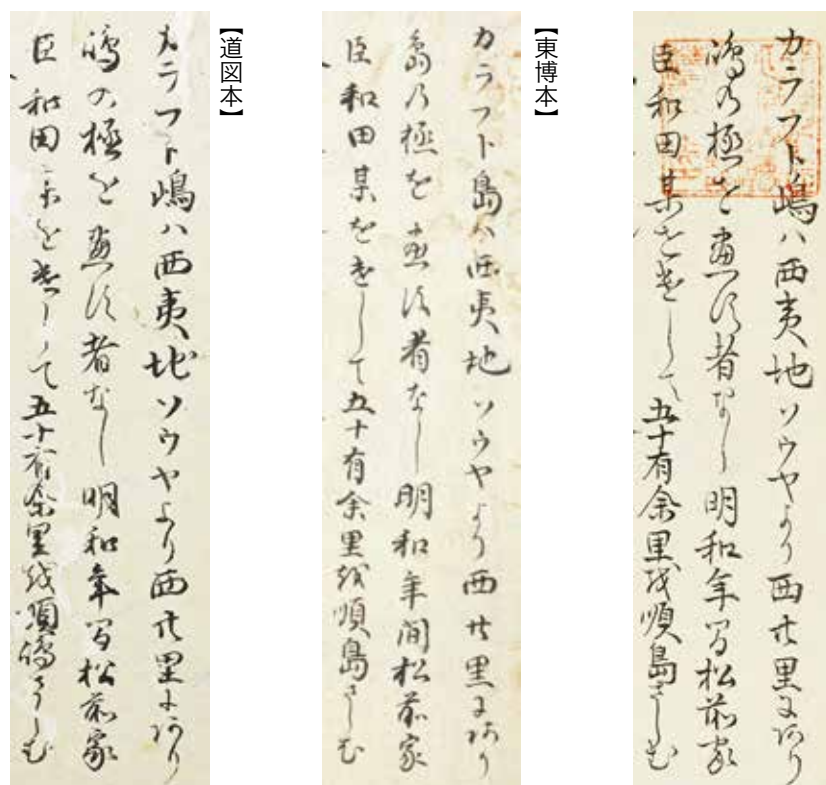 カラフト嶋ハ西夷地ソウヤより西廿里にあり
嶋の極を盡す者なし明和年間松前家
臣和田某を遣して五十有余里を順島さしむ
【東博本】
カラフト島ハ西夷地ソウヤより西廿里にあり
島の極を盡す者なし明和年間松前家
臣和田某を遣して五十有余里を順島さしむ
【道図本】
カラフト嶋ハ西夷地ソウヤより西廿里にあり
嶋の極を盡す者なし明和年間松前家
臣和田某を遣して五十有余里を順嶋さしむ